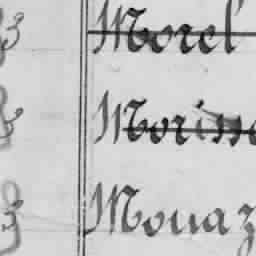 3 Morel
3 Morisso
3 Mouaz